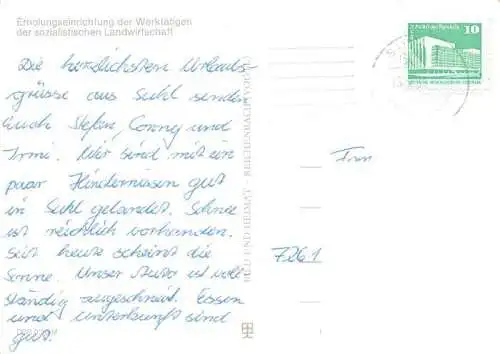 Erholungseinrichtung der Werktätigen
der sozialistischen Landwirtschaft
Die herzlichsten Urlaubs-
grüsse aus Suhl senden
Euch Stefan, Conny und
Irmi. Wir sind mit ein
paar Hindernissen gut
in Suhl gelandet. Schnee
ist reichlich vorhanden.
Seit heute scheint die
Sonne. Unser Auto ist voll
ständig zugeschneit. Essen
und Unterkunft sind
gut.
BILD UND HEIMAT · REICHENBACH (VOGTL
10
Palast der Republik
DDR
Fam
7261